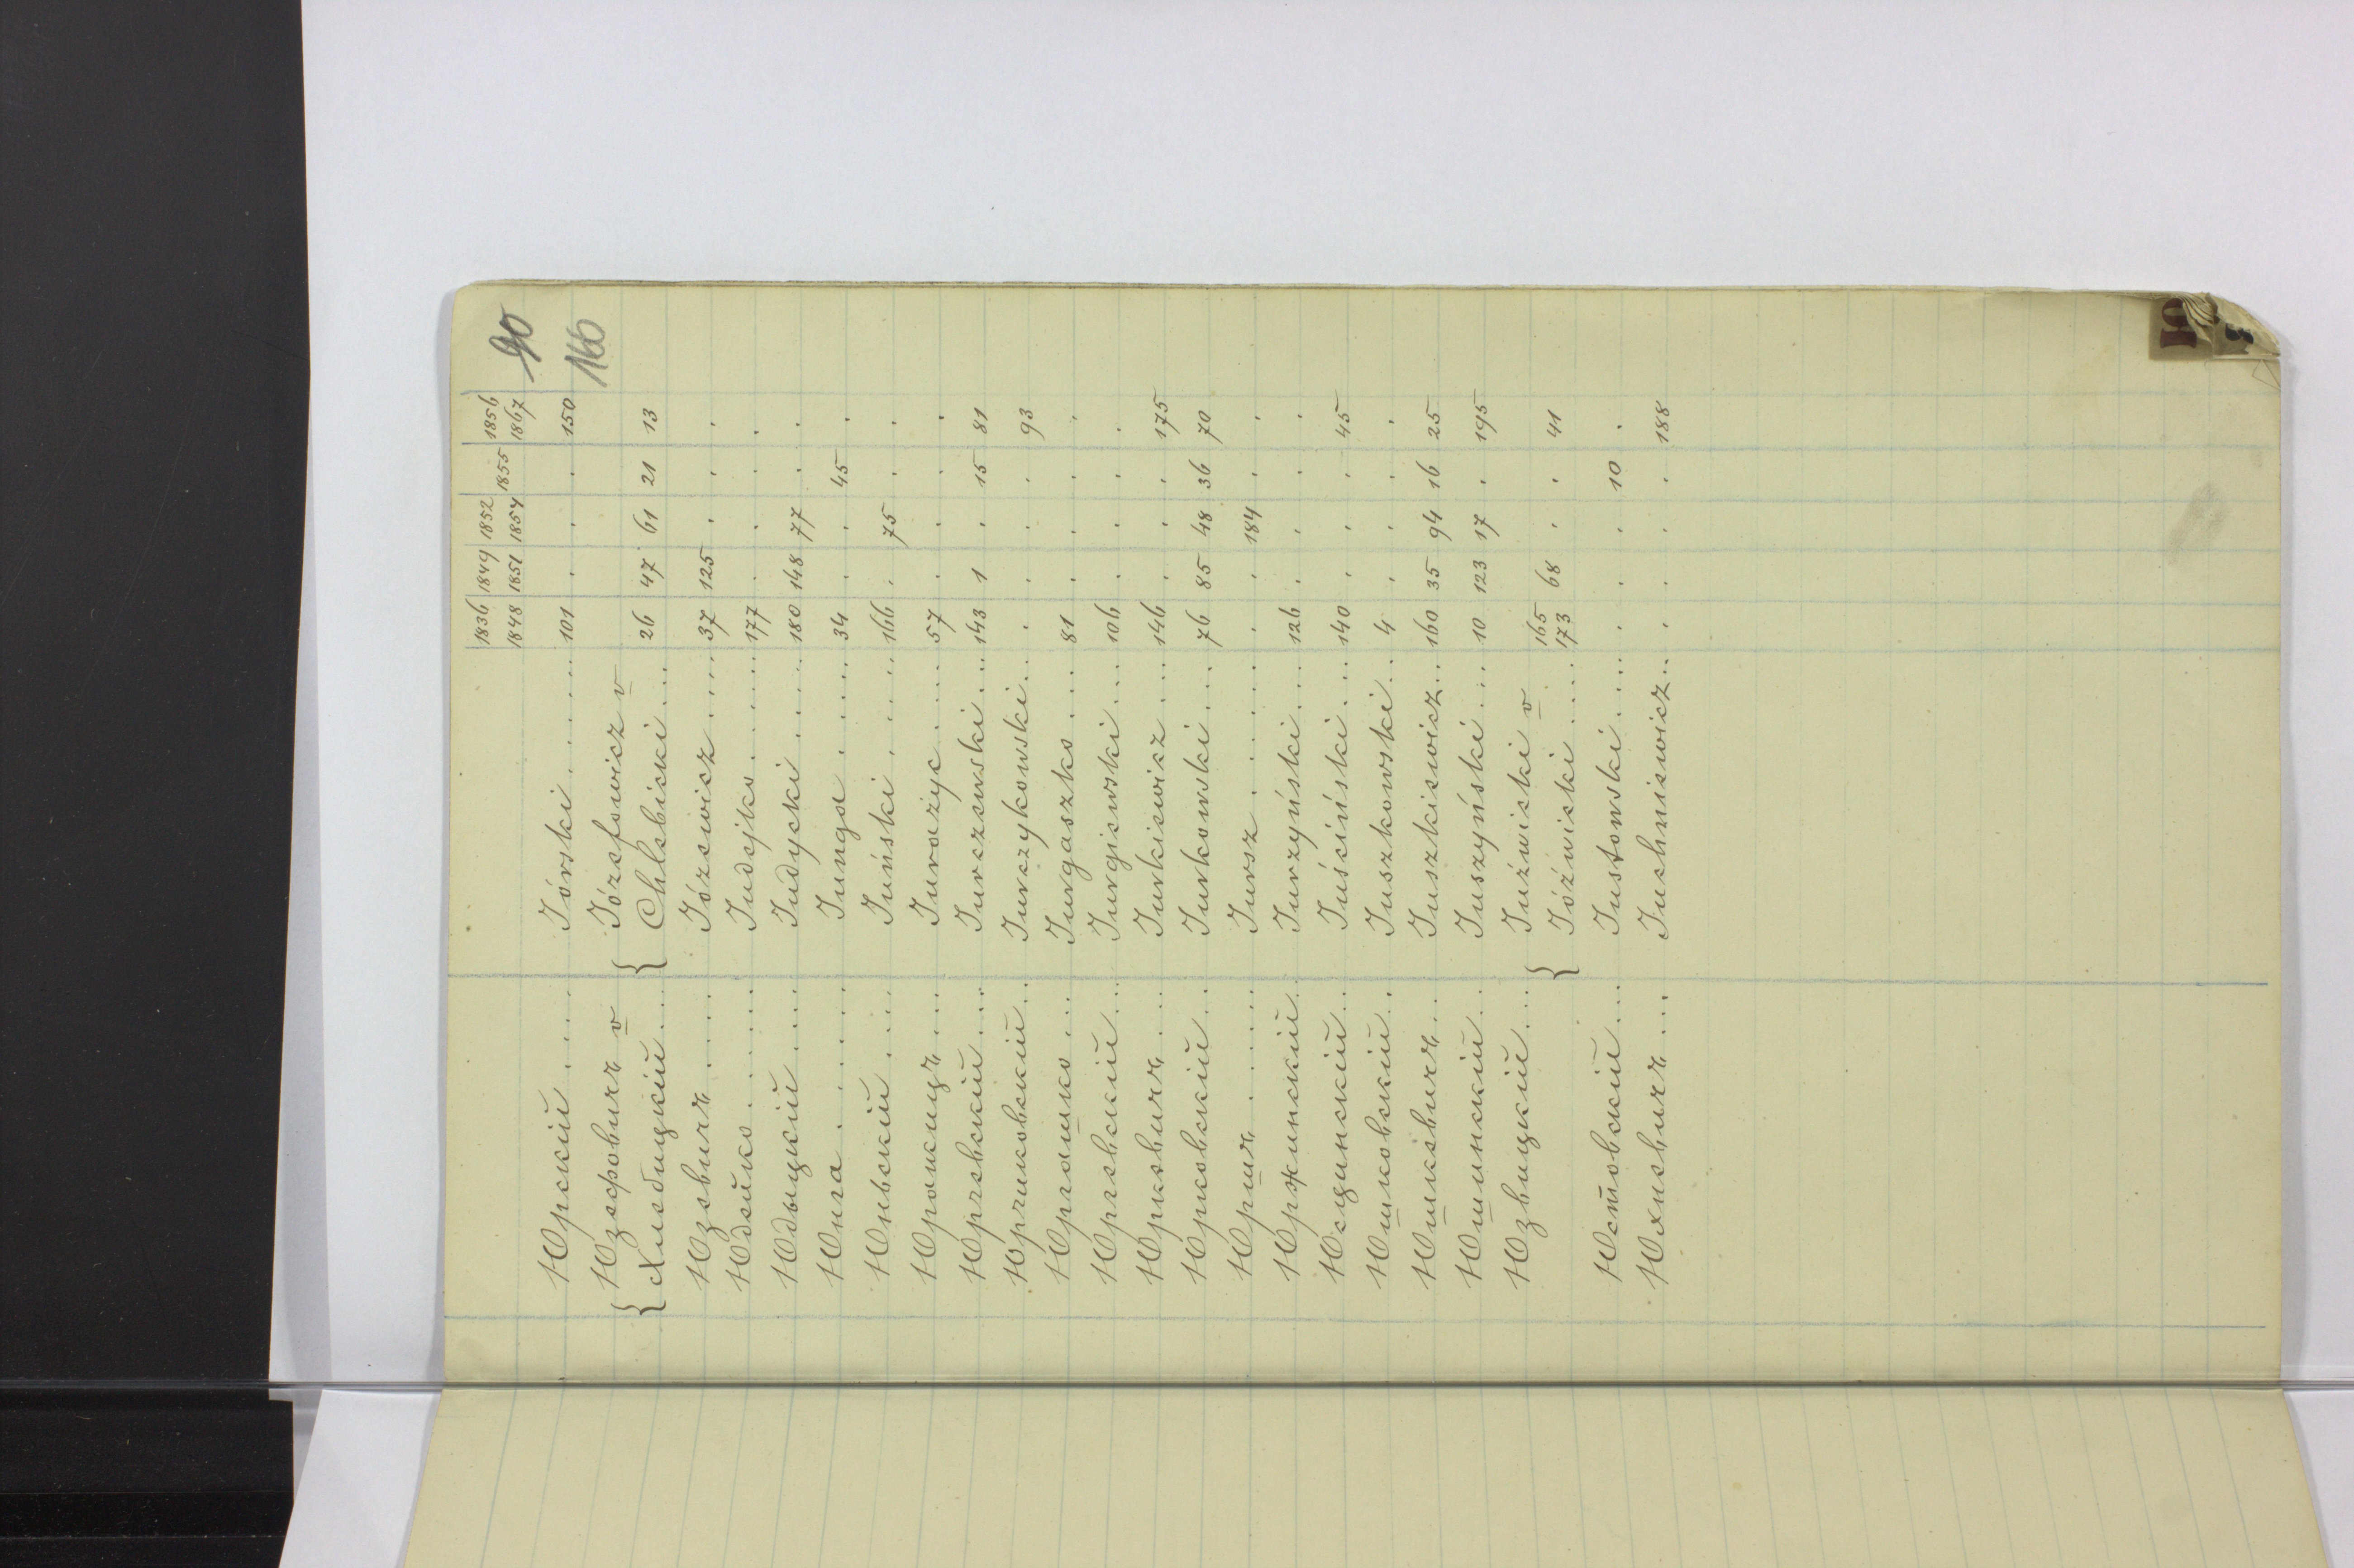 90
1836 1849 1852 1855 1856
1848 1851 1854 1867
160
Юрскій .... Jórski ...... 101 . . . 150
Юзефовичъ v Józefowicz v
{ Хлебицкій ... { Chlebicki ... 26 47 61 21 13
Юзевичъ .... Józewicz .... 37 125 . . .
Юдейко ..... Judejko ..... 177 . . . .
Юдыцкій .... Judycki .... 180 148 77 . .
Юнга ..... Junga ..... 34 . . 45 .
Юньскій .... Juński .... 166 . 75 . .
Юрожицъ ... Jurożyc .... 57 . . . .
Юрчевскій ... Jurczewski ... 143 1 . 15 81
Юрчиковскій .. Jurczykowski .. . . . . 93
Юргашко ... Jurgaszko ... 81 . . . .
Юргевскій ... Jurgiewski ... 106 . . . .
Юркевичъ ... Jurkiewicz ... 146 . . . 175
Юрковскій .. Jurkowski ... 76 85 48 36 70
Юршъ ..... Jursz ...... . . 184 . .
Юржинскій .. Jurzyński ... 126 . . . .
Юсцинскій .. Juściński ... 140 . . . 45
Юшковскій . Juszkowski .. 4 . . . .
Юшкевичъ ... Juszkiewicz .. 160 35 94 16 25
Юшинскій .. Juszyński ... 10 123 17 . 195
Юзвицкій ... { Juźwicki v 165
Jóźwicki .... 173 68 . . 41
Юстовскій ... Justowski .... . . . 10 .
Юхневичъ ... Juchniewicz .. . . . . 188
Ю